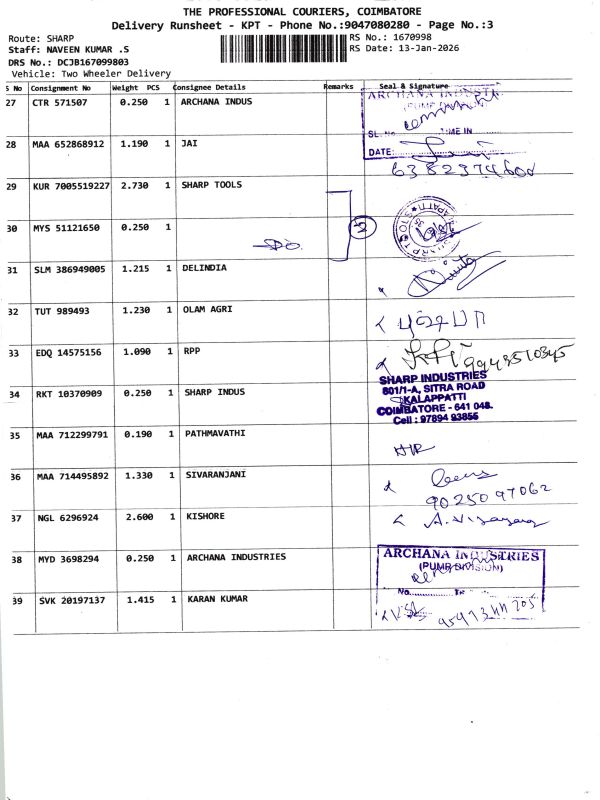 THE PROFESSIONAL COURIERS, COIMBATORE
Delivery Runsheet - KPT - Phone No.:9047080280 - Page No.:3
Route: SHARP
RS No.: 1670998
Staff: NAVEEN KUMAR .S
RS Date: 13-Jan-2026
DRS No.: DCJB167099803
Vehicle: Two Wheeler Delivery
S No Consignment No Weight PCS Consignee Details Remarks Seal & Signature
27 CTR 571507 0.250 1 ARCHANA INDUS
ARCHANA INDUSTR
(PUMP DIVISION)
SL. No TIME IN
DATE:
28 MAA 652868912 1.190 1 JAI
6382374600
29 KUR 7005519227 2.730 1 SHARP TOOLS
30 MYS 51121650 0.250 1
2
31 SLM 386949005 1.215 1 DELINDIA
32 TUT 989493 1.230 1 OLAM AGRI
33 EDQ 14575156 1.090 1 RPP
9943510345
34 RKT 10370909 0.250 1 SHARP INDUS
SHARP INDUSTRIES
801/1-A, SITRA ROAD
KALAPPATTI
COIMBATORE - 641 048.
Cell : 97894 93855
35 MAA 712299791 0.190 1 PATHMAVATHI
36 MAA 714495892 1.330 1 SIVARANJANI
9025097062
37 NGL 6296924 2.600 1 KISHORE
38 MYD 3698294 0.250 1 ARCHANA INDUSTRIES
ARCHANA INDUSTRIES
(PUMP DIVISION)
No.
39 SVK 20197137 1.415 1 KARAN KUMAR